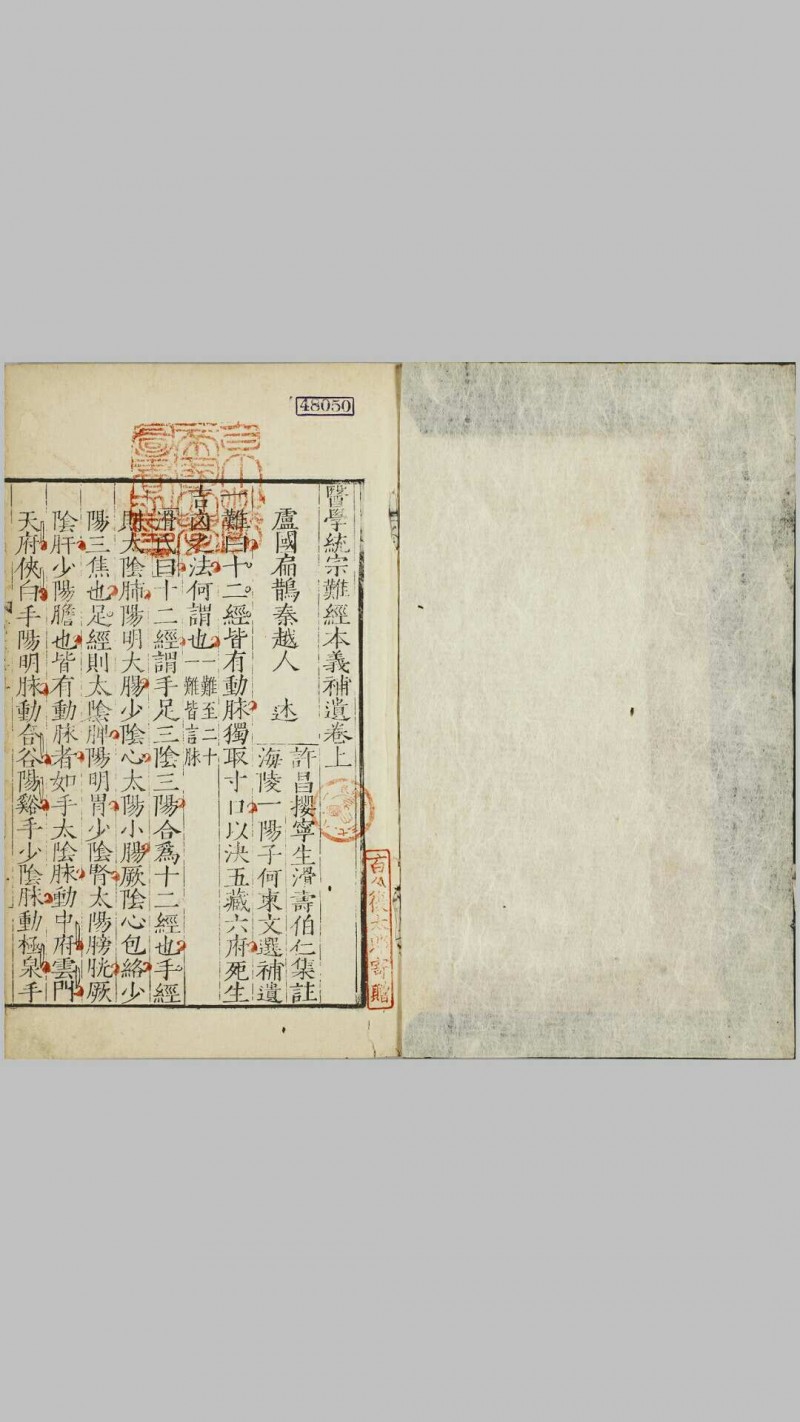 48050
醫學統宗難經本義補遺卷上
許昌攖寧生滑壽伯仁集註
盧國扁鵲秦越人 述
海陵一陽子何柬文選補遺
難曰十二經皆有動脉獨取寸口以決五藏六府死生
吉凶之法何謂也一難至二十
難皆言脉
滑氏曰十二經謂手足三陰三陽合爲十二經也手經
則太陰肺陽明大腸少陰心太陽小腸厥陰心包絡少
陽三焦也足經則太陰脾陽明胃少陰腎太陽膀胱厥
陰肝少陽膽也皆有動脉者如手太陰脉動中府雲門
天府俠白手陽明脉動合谷陽谿手少陰脉動極泉手
寄贈